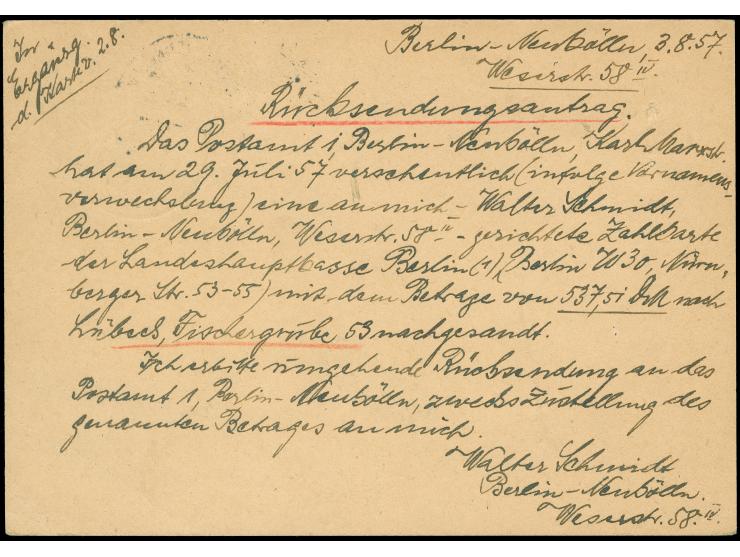 In
Ergänzg.
d. Karte v. 2.8.
Berlin-Neukölln, 3.8.57.
Weserstr. 58 IV.
Rücksendungsantrag.
Das Postamt 1 Berlin-Neukölln, Karl Marxstr.
hat am 29. Juli 57 versehentlich (infolge Vornamens-
verwechslung) eine an mich - Walter Schmidt,
Berlin-Neukölln, Weserstr. 58 IV - gerichtete Zahlkarte
der Landeshauptkasse Berlin (1) (Berlin W30, Nürn-
berger Str. 53-55) mit dem Betrage von 537,51 DM nach
Lübeck, Fischergrube 53 nachgesandt.
Ich erbitte umgehende Rücksendung an das
Postamt 1, Berlin-Neukölln, zwecks Zustellung des
genannten Betrages an mich.
Walter Schmidt
Berlin-Neukölln.
Weserstr. 58. IV.